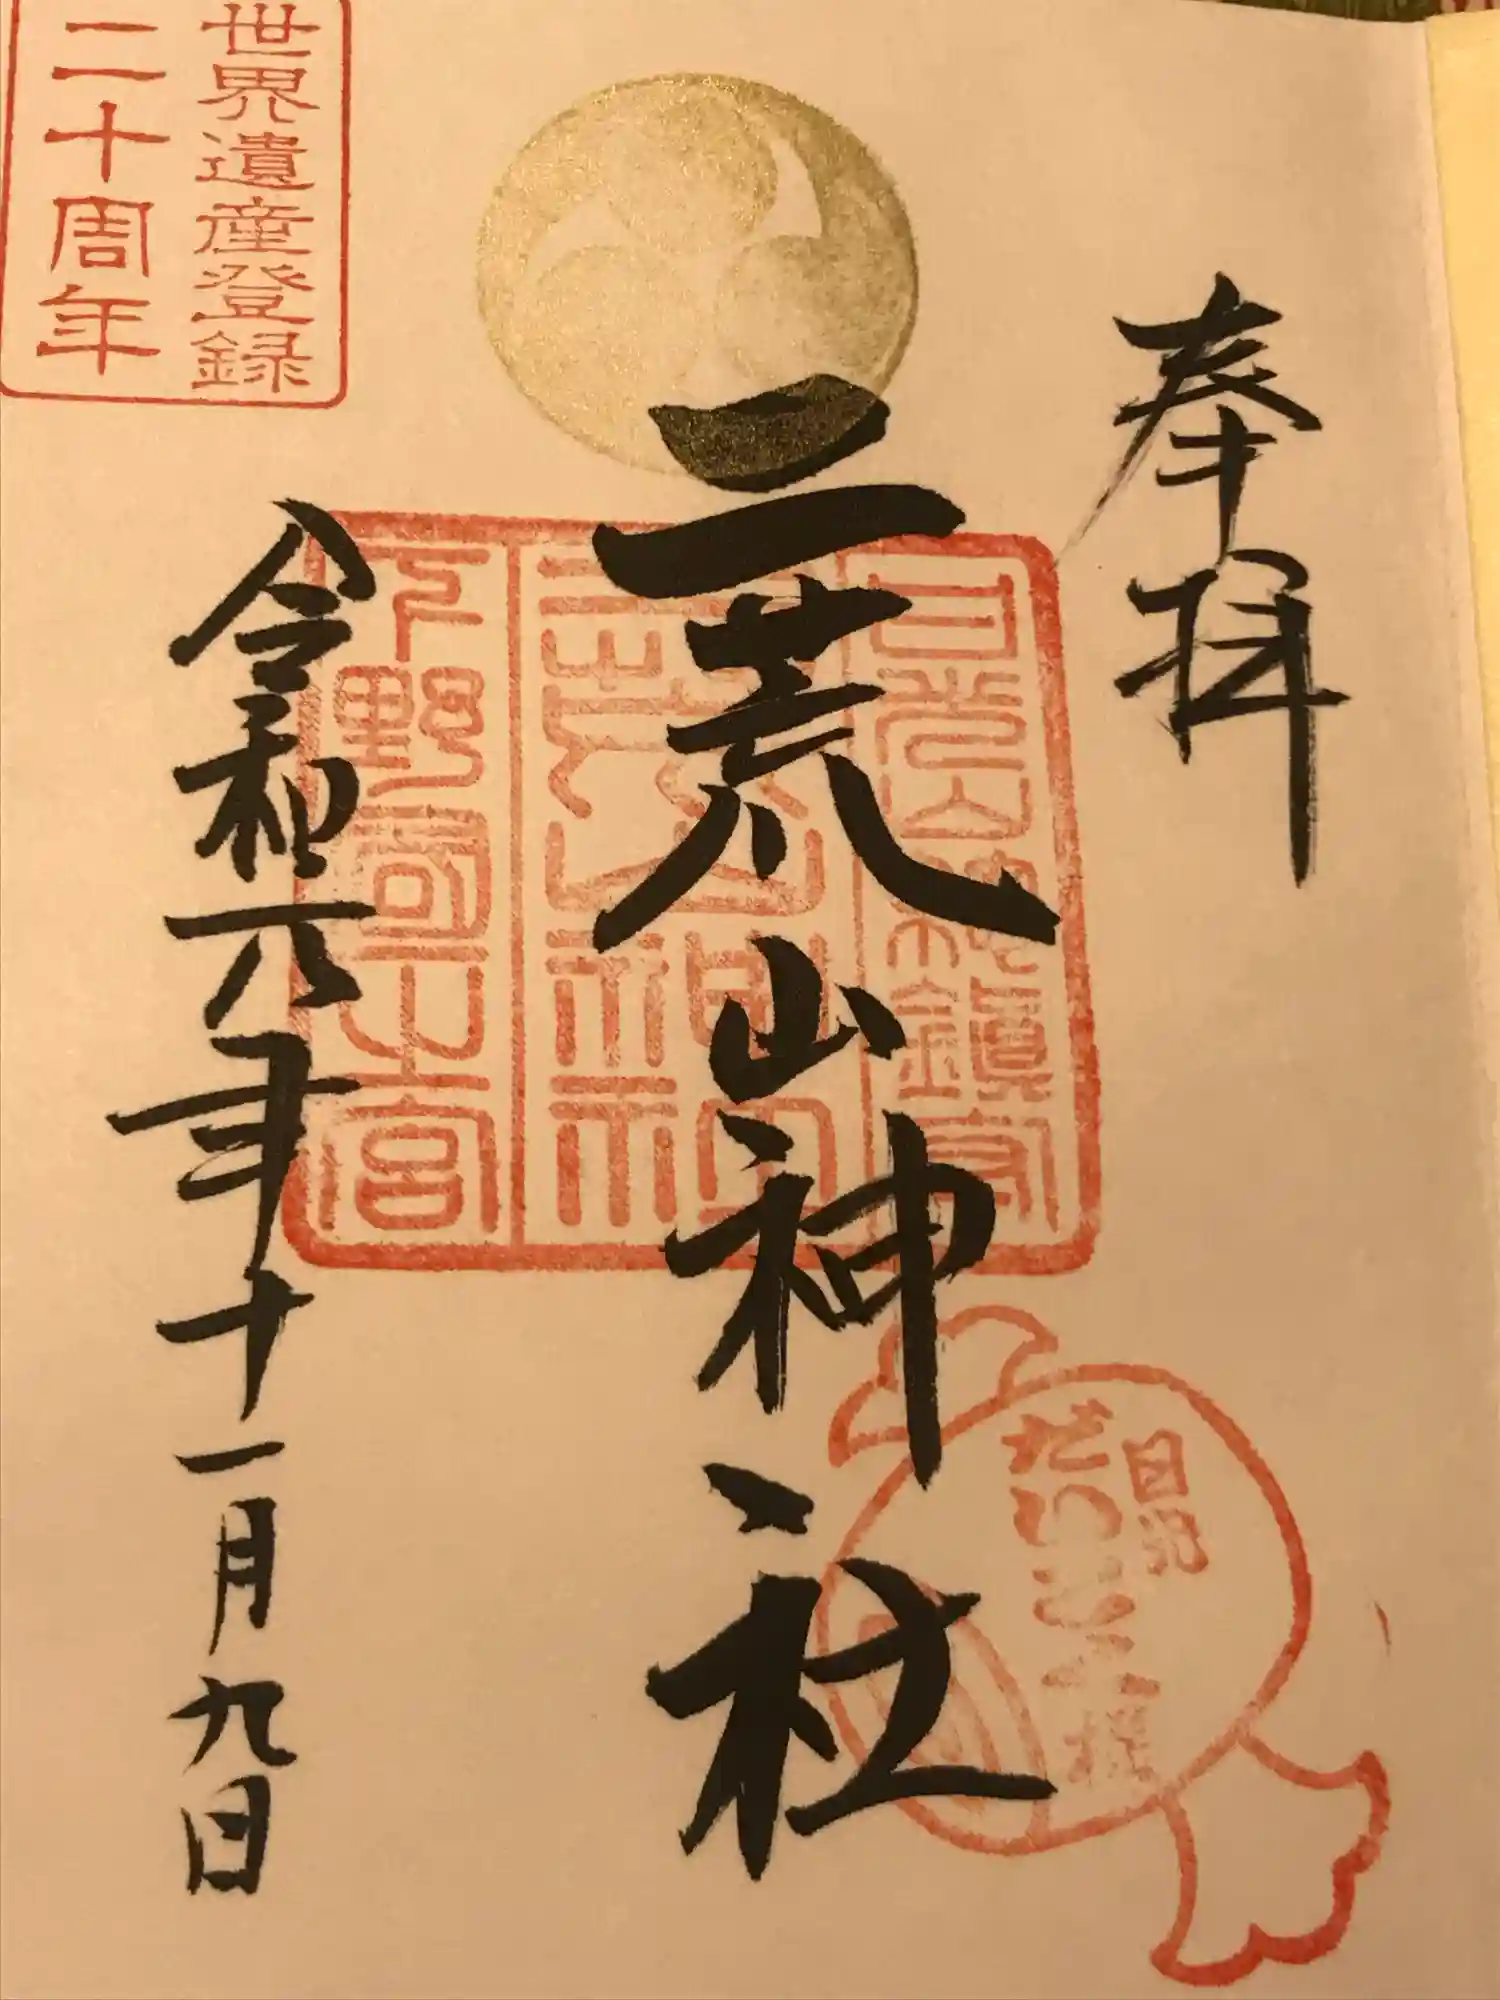 奉拝
二荒山神社
令和六年十一月九日
世界遺産登録
二十周年
二荒山神社
下野國一之宮
日光
だいこく様